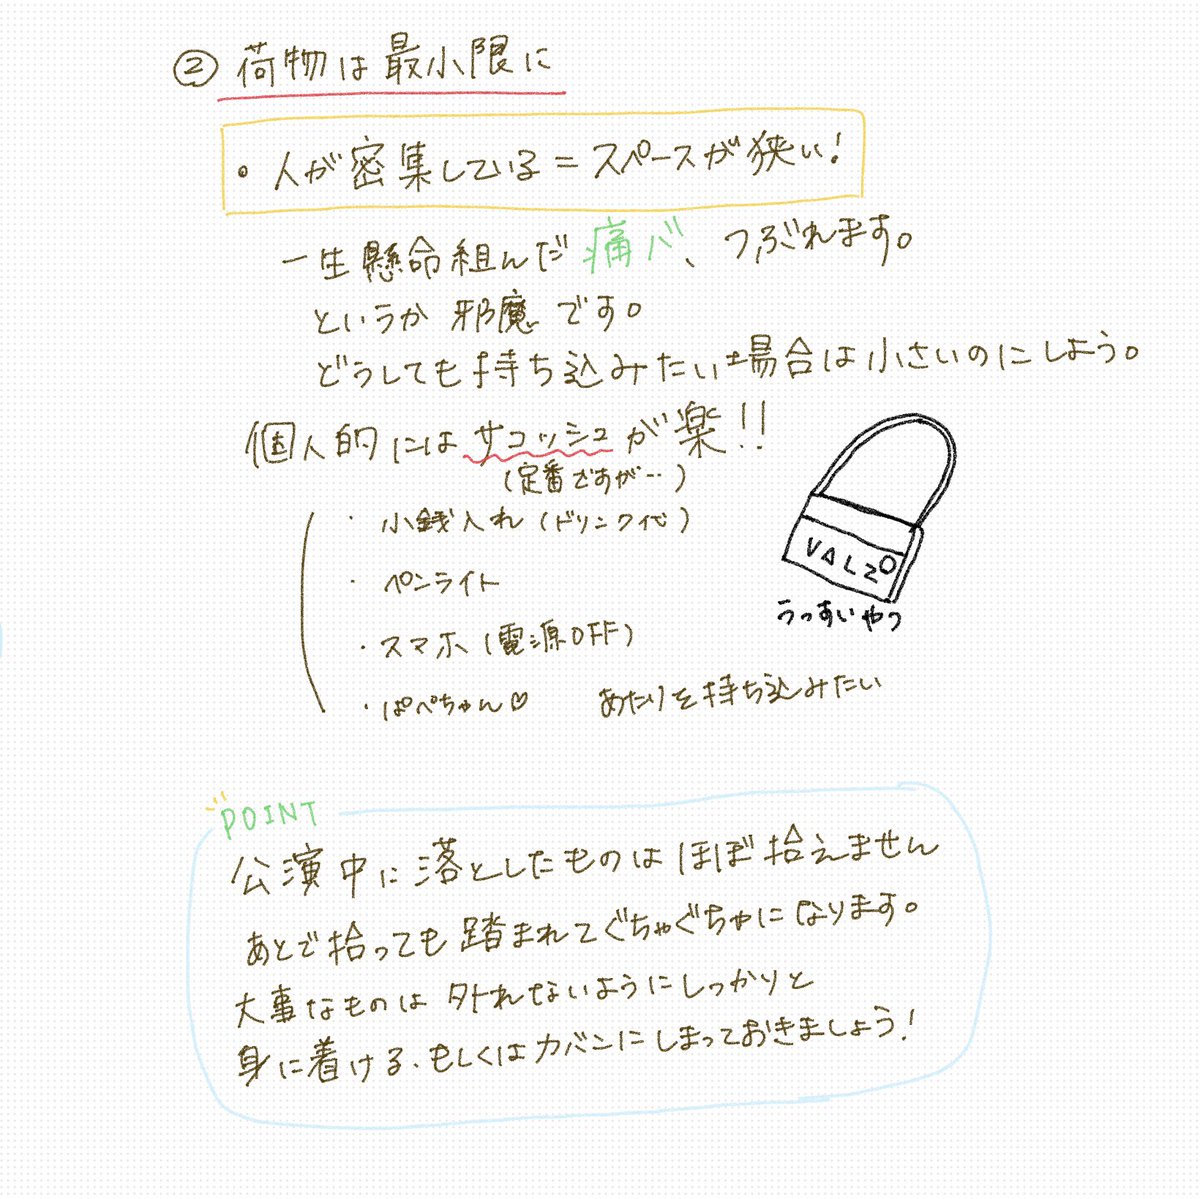 ② 荷物は最小限に
・人が密集している=スペースが狭い!
一生懸命組んだ痛バ、つぶれます。
というか邪魔です。
どうしても持ち込みたい場合は小さいのにしよう。
個人的にはサコッシュが楽!!
(定番ですが…)
・小銭入れ(ドリンク代)
・ペンライト
・スマホ(電源OFF)
・ぱぺちゃん♡ あたりを持ち込みたい
VALZ
うっすいやつ
POINT
公演中に落としたものはほぼ拾えません
あとで拾っても踏まれてぐちゃぐちゃになります。
大事なものは外れないようにしっかりと
身に着ける、もしくはカバンにしまっておきましょう!